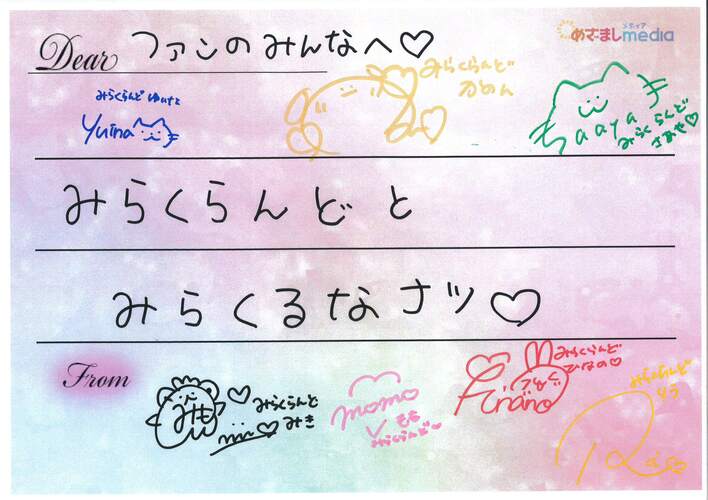 Dear ファンのみんなへ♡
メディア
めざましmedia
みらくらんど ゆいな
Yuina
みらくらんど
かのん
みらくらんど
さあや♡
みらくらんどと
みらくるなナツ♡
From
みらくらんど
みき
momo
もも
みらくらんど♡
みらくらんど
ひなの♡
みらくらんど
りう